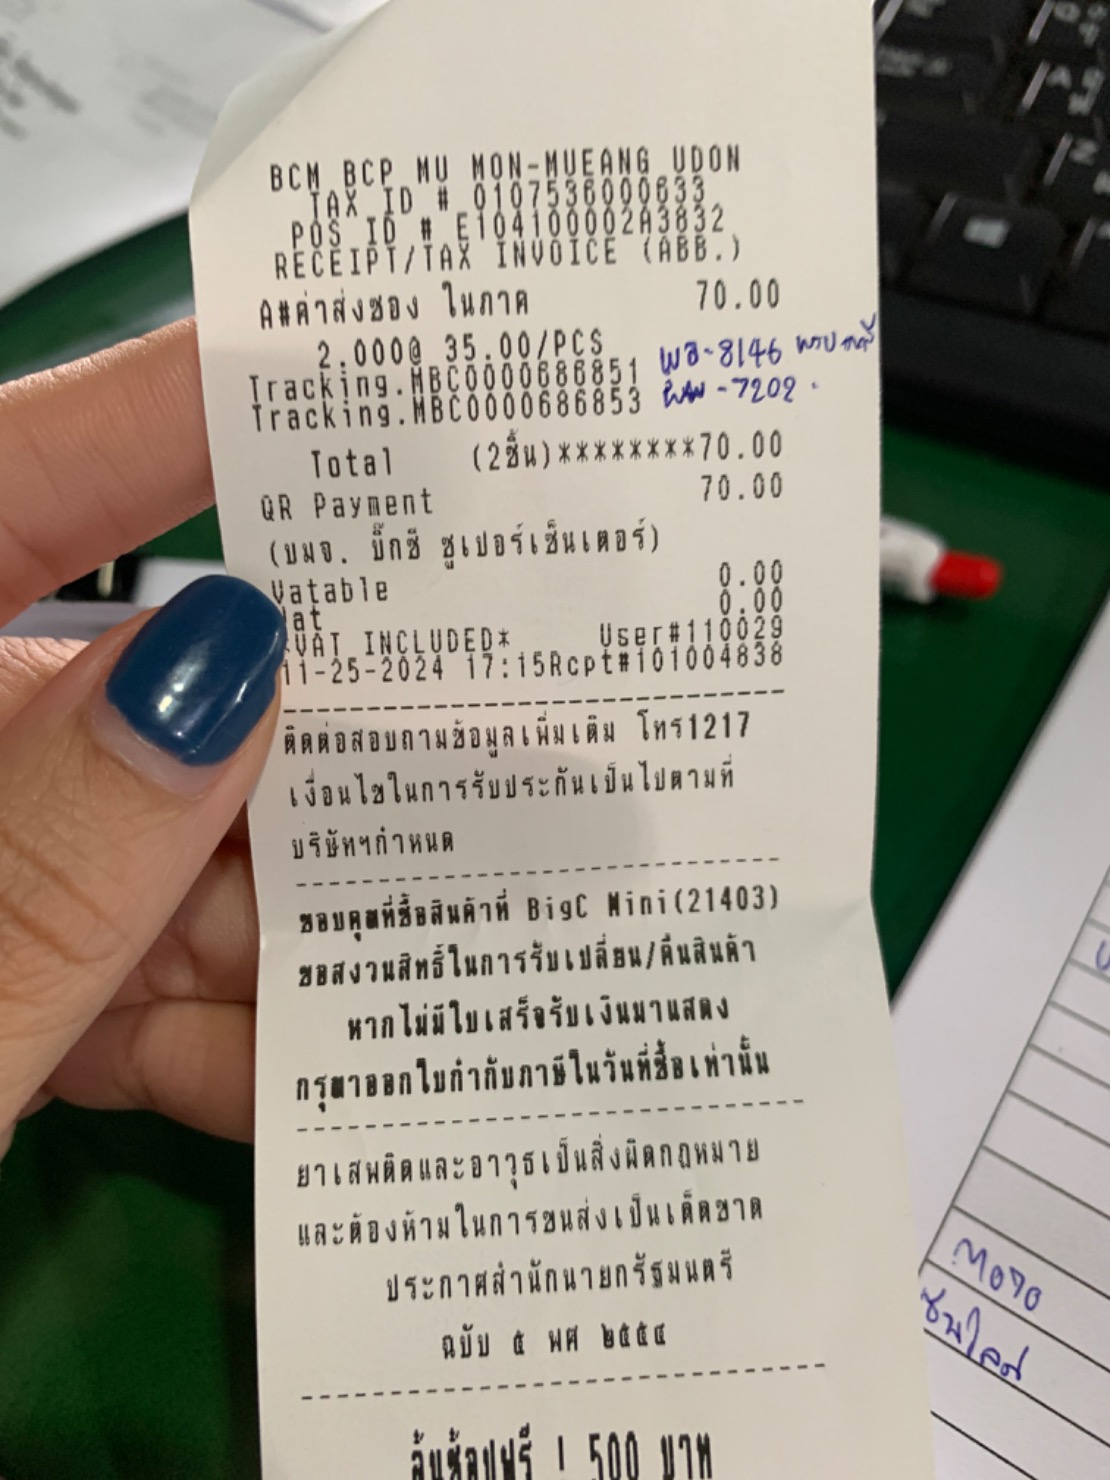 BCM BCP MU MON-MUEANG UDON
TAX ID # 0107536000633
POS ID # E104100002A3832
RECEIPT/TAX INVOICE (ABB.)
A#ค่าส่งซอง ในภาค 70.00
2.000@ 35.00/PCS
Tracking.MBC0000686851 -8146
Tracking.MBC0000686853 -7202
Total (2ชิ้น)********70.00
QR Payment 70.00
(บมจ. บิ๊กซี ซูเปอร์เซ็นเตอร์)
Vatable 0.00
Vat 0.00
*VAT INCLUDED* User#110029
11-25-2024 17:15Rcpt#101004838
ติดต่อสอบถามข้อมูลเพิ่มเติม โทร1217
เงื่อนไขในการรับประกันเป็นไปตามที่
บริษัทฯกำหนด
ขอบคุณที่ซื้อสินค้าที่ BigC Mini(21403)
ขอสงวนสิทธิ์ในการรับเปลี่ยน/คืนสินค้า
หากไม่มีใบเสร็จรับเงินมาแสดง
กรุณาออกใบกำกับภาษีในวันที่ซื้อเท่านั้น
ยาเสพติดและอาวุธเป็นสิ่งผิดกฎหมาย
และต้องห้ามในการขนส่งเป็นเด็ดขาด
ประกาศสำนักนายกรัฐมนตรี
ฉบับ ๕ พศ ๒๕๕๔
ลุ้นช้อปฟรี ! 500 บาท